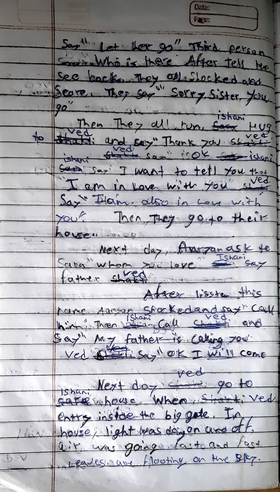 Date:
Page:
Say" Let her go" Third person
Who is there After tell Me
See back. They all shocked and
Scare. They Say" Sorry Sister, You
go"
Then They all run, ishani HUG
to ved and say" Thank you ved
ishani ved Say" "OK ishani
Say" I want to tell you that
"I am in Love with you" ved
Say" I am also in Love with
you". Then, They go to their
house.
Next day, Aaryan ask to
Sara" whom you love" Ishani Say
father ved
After listen this
name Aaryan Shocked and say" Call
him, Then ishani Call ved and
Say" My father is calling you"
Ved Say" "OK I will come
Next day ved go to
Ishani house. When ved
entry inside the big gate. In
house, light was day on and off.
air was going fast and fast
Leaves are flooting on the sky.